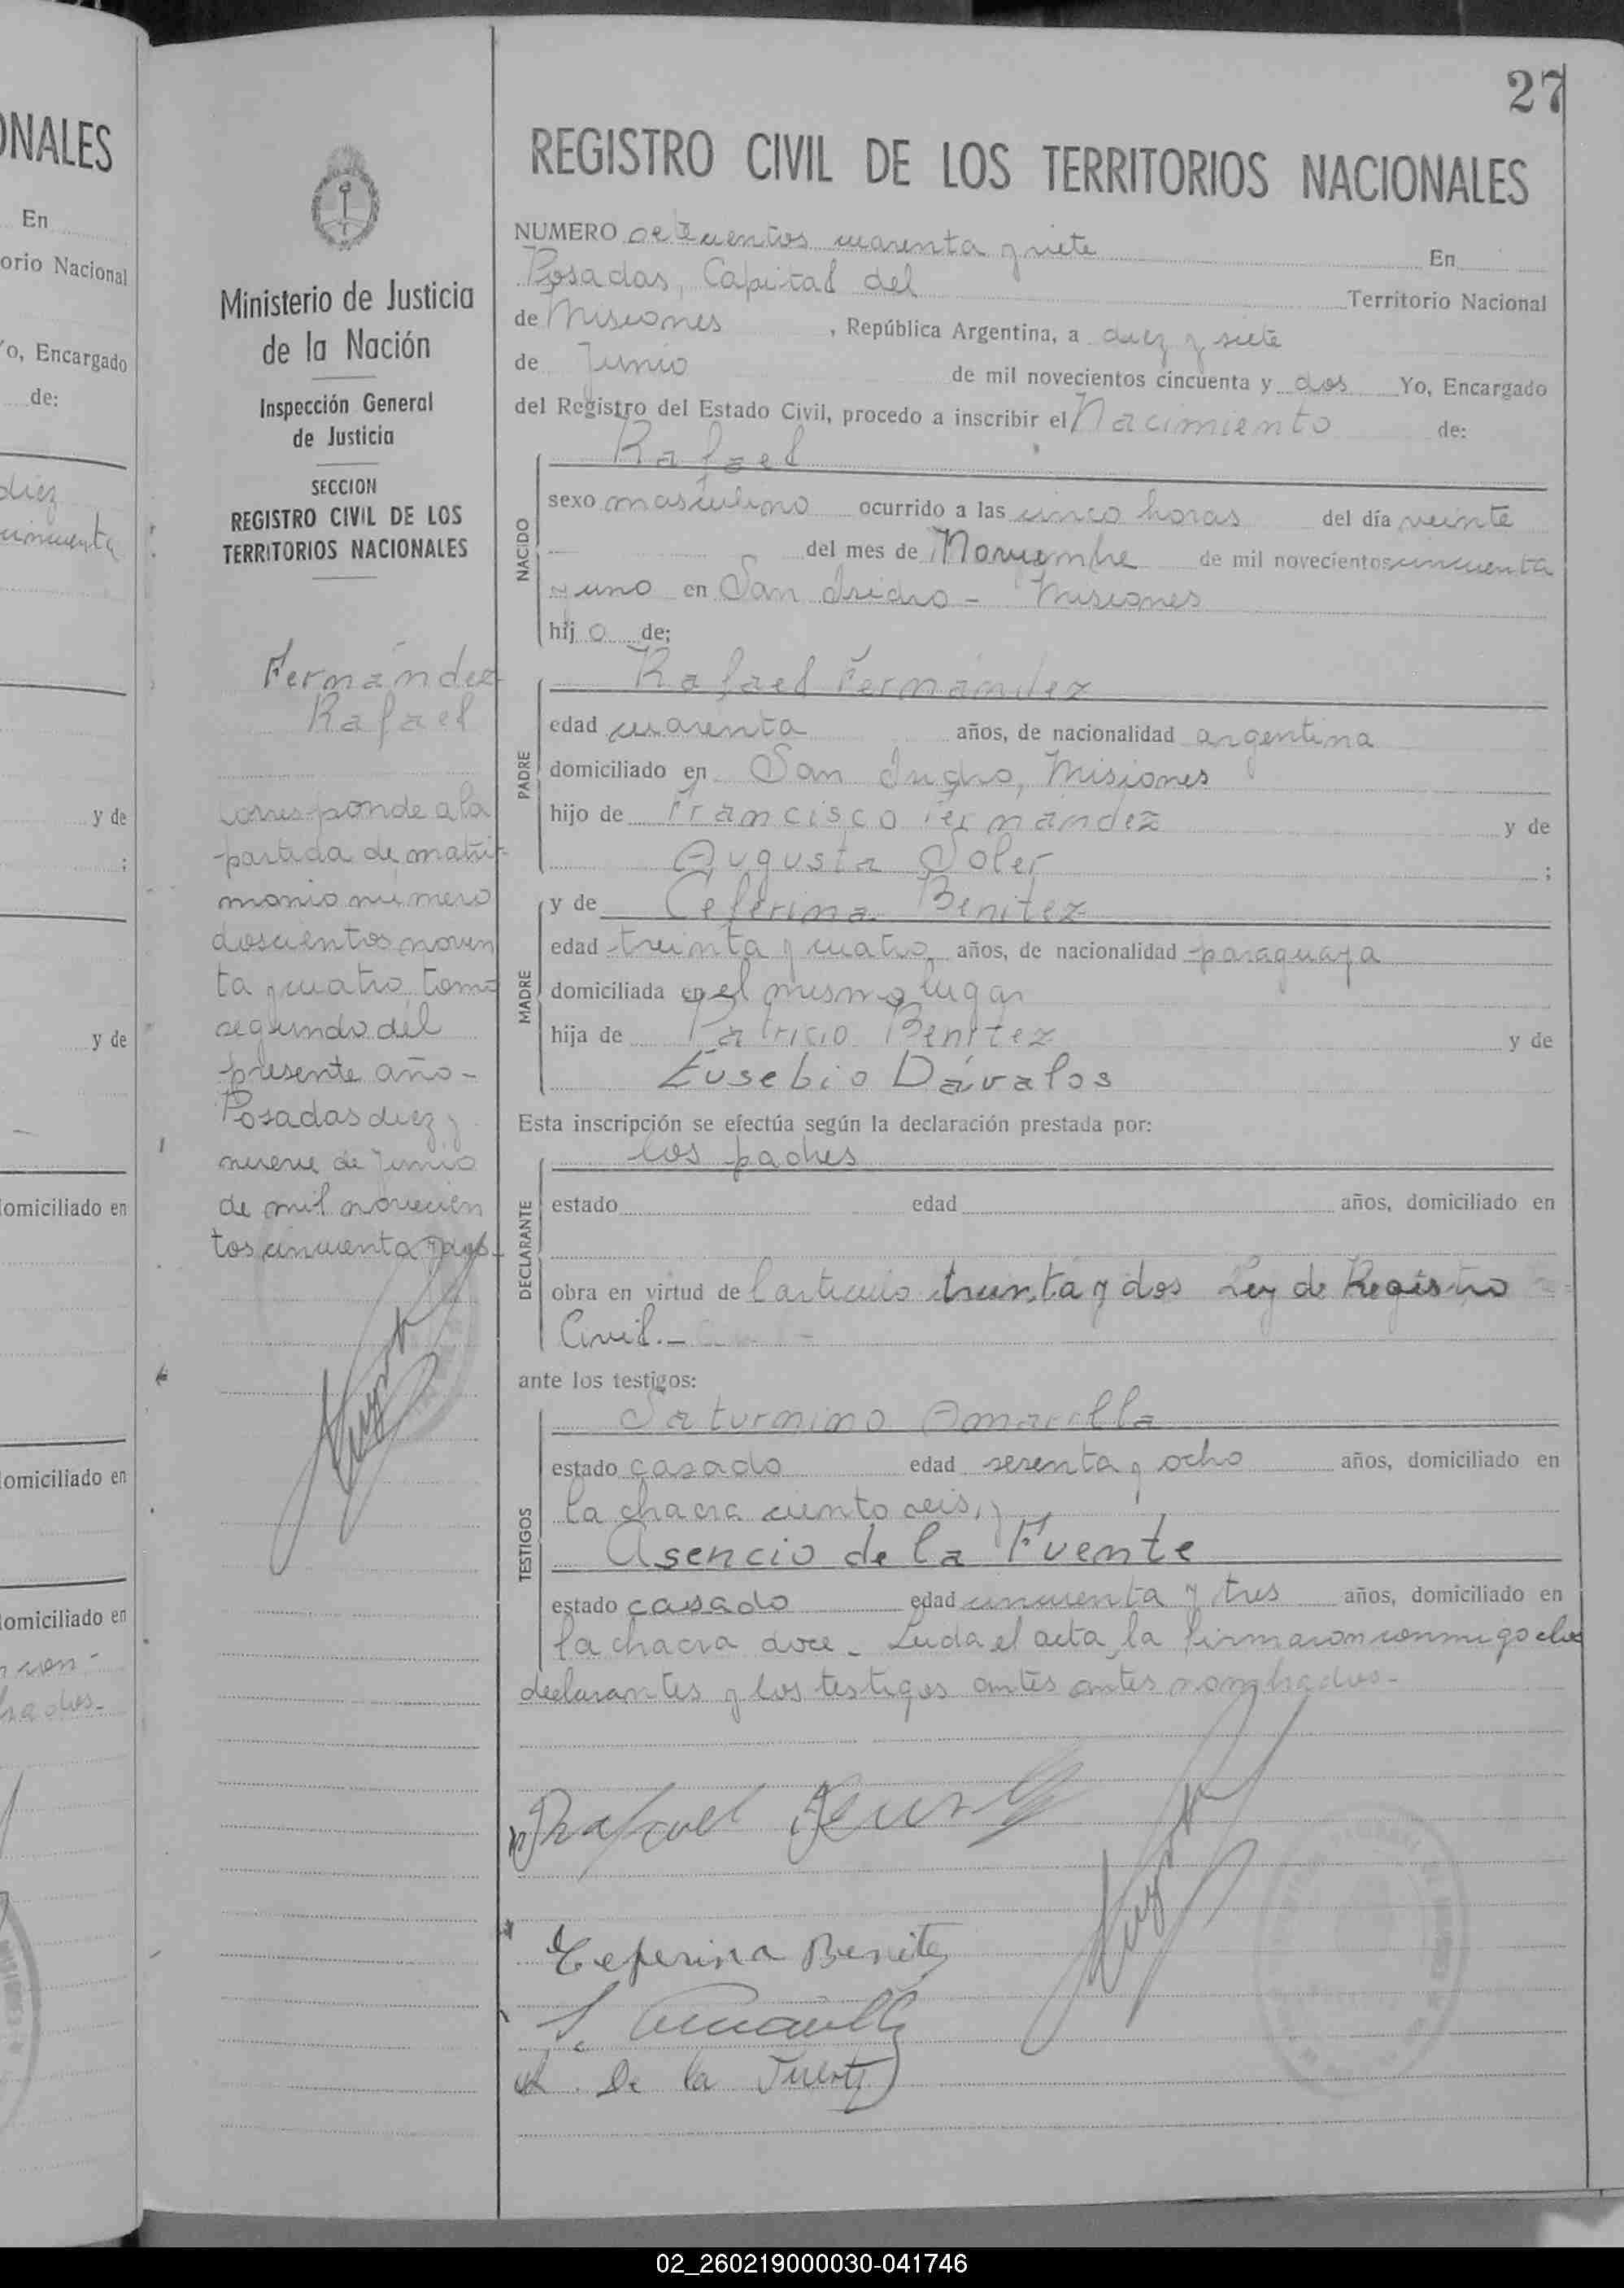 27
ONALES
En
orio Nacional
Yo, Encargado
de:
diez
cincuenta
y de
;
y de
domiciliado en
domiciliado en
domiciliado en
con-
brados-
Ministerio de Justicia
de la Nación
Inspección General
de Justicia
SECCION
REGISTRO CIVIL DE LOS
TERRITORIOS NACIONALES
Fernández
Rafael
Corresponde a la
partida de matri-
monio número
doscientos noven
ta y cuatro, tomo
segundo del
presente año-
Posadas diez y
nueve de Junio
de mil novecien
tos cincuenta y dos-
REGISTRO CIVIL DE LOS TERRITORIOS NACIONALES
NUMERO setecientos cuarenta y siete En
Posadas, Capital del Territorio Nacional
de Misiones , República Argentina, a diez y siete
de Junio de mil novecientos cincuenta y dos Yo, Encargado
del Registro del Estado Civil, procedo a inscribir el Nacimiento de:
Rafael
NACIDO
sexo masculino ocurrido a las cinco horas del día veinte
del mes de Noviembre de mil novecientos cincuenta
y uno en San Isidro - Misiones
hij o de;
Rafael Fernández
PADRE
edad cuarenta años, de nacionalidad argentina
domiciliado en San Isidro, Misiones
hijo de Francisco Fernández y de
Augusta Soler ;
MADRE
y de Ceferina Benítez
edad treinta y cuatro años, de nacionalidad paraguaya
domiciliada en el mismo lugar
hija de Patricio Benítez y de
Eusebio Dávalos
Esta inscripción se efectúa según la declaración prestada por:
los padres
DECLARANTE
estado edad años, domiciliado en
obra en virtud de l artículo treinta y dos Ley de Registro
Civil.-
ante los testigos:
Saturnino Amarilla
TESTIGOS
estado casado edad sesenta y ocho años, domiciliado en
la chacra ciento seis, y
Asencio de la Fuente
estado casado edad cincuenta y tres años, domiciliado en
la chacra doce - Leida el acta, la firmaron conmigo los
declarantes y los testigos antes antes nombrados-
Rafael
Ceferina Benitez
S. Amarilla
A. De la Fuente
02_260219000030-041746